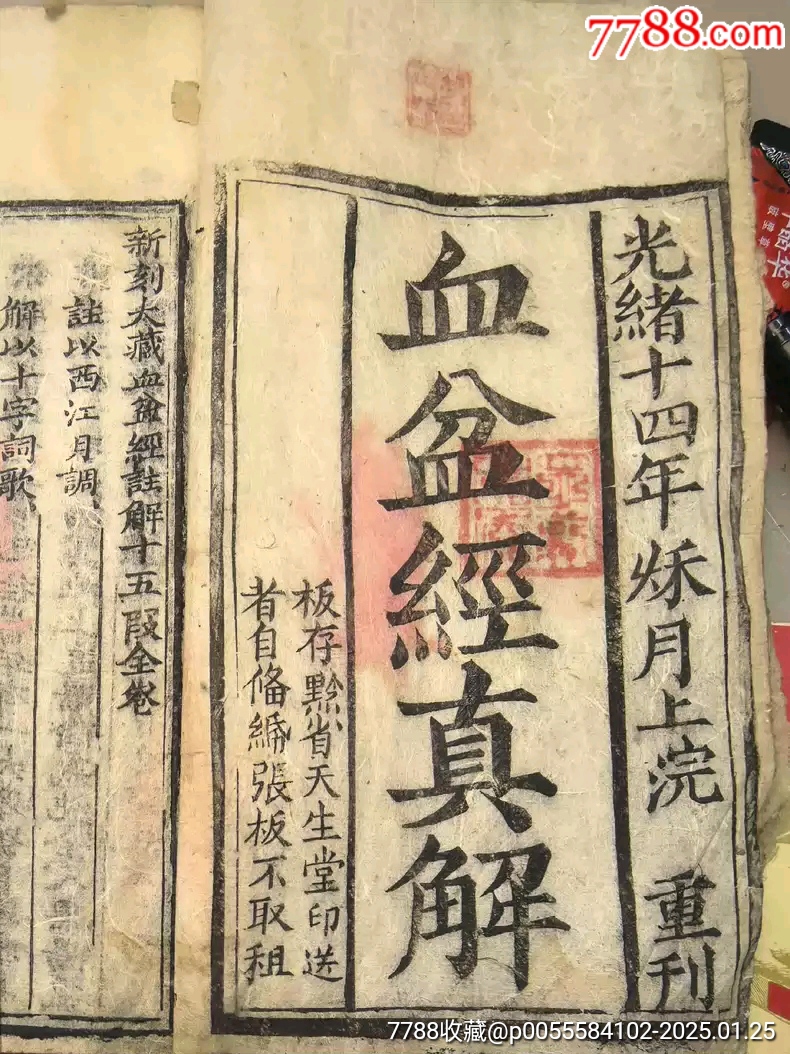 7788.com
光緒十四年烁月上浣 重刊
血盆經真解
板存黔省天生堂印送
者自俻緍張板不取租
新刻大藏血盆經註解十五叚全卷
註以西江月調
解以十字詞歌
7788收藏@p0055584102-2025.01.25